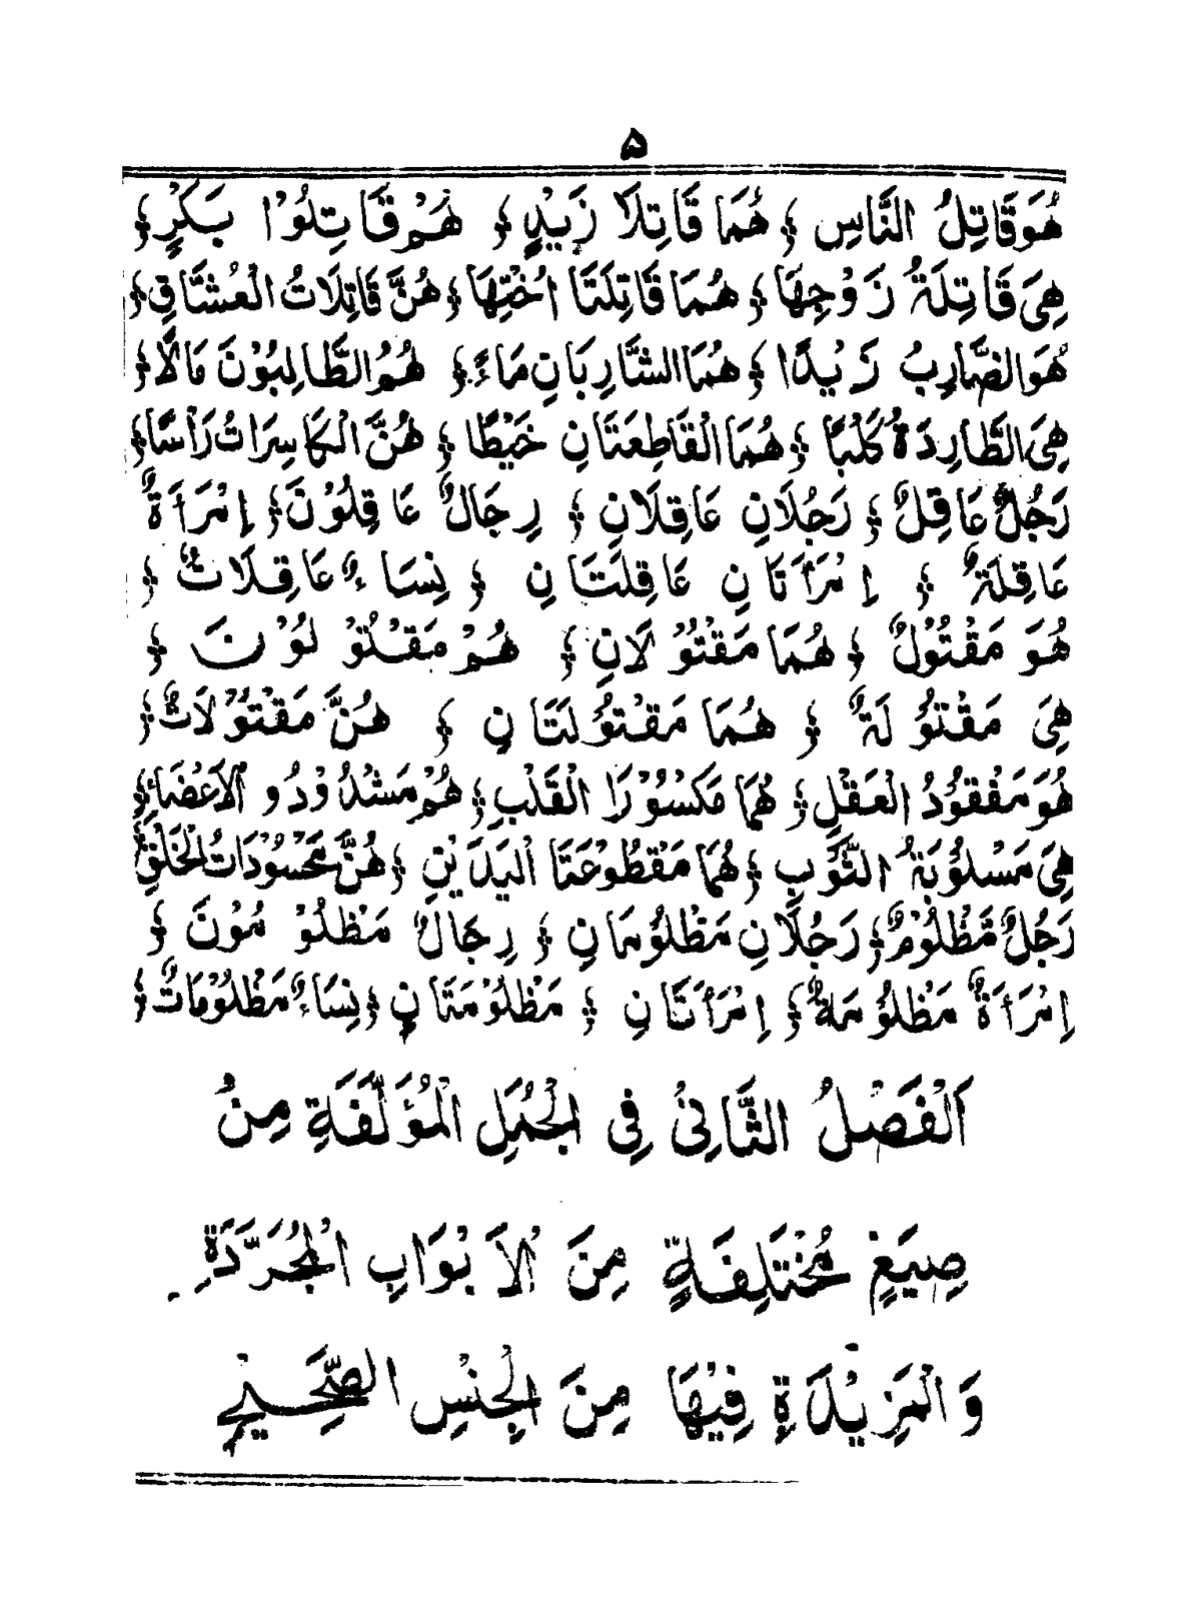 ۵
هُوَ قَاتِلُ النَّاسِ ﴿ هُمَا قَاتِلَا زَيْدٍ ﴿ هُمْ قَاتِلُوْا بَكْرٍ ﴿
هِيَ قَاتِلَةُ زَوْجِهَا ﴿ هُمَا قَاتِلَتَا اُخْتِهَا ﴿ هُنَّ قَاتِلَاتُ الْعُشَّاقِ ﴿
هُوَ الضَّارِبُ زَيْدًا ﴿ هُمَا الشَّارِبَانِ مَاءً ﴿ هُمُ الطَّالِبُوْنَ مَالًا ﴿
هِيَ الطَّارِدَةُ كَلْبًا ﴿ هُمَا الْقَاطِعَتَانِ خَيْطًا ﴿ هُنَّ الْكَاسِرَاتُ رَأْسًا ﴿
رَجُلٌ عَاقِلٌ ﴿ رَجُلَانِ عَاقِلَانِ ﴿ رِجَالٌ عَاقِلُوْنَ ﴿ اِمْرَأَةٌ
عَاقِلَةٌ ﴿ اِمْرَأَتَانِ عَاقِلَتَانِ ﴿ نِسَاءٌ عَاقِلَاتٌ ﴿
هُوَ مَقْتُوْلٌ ﴿ هُمَا مَقْتُوْلَانِ ﴿ هُمْ مَقْتُوْلُوْنَ ﴿
هِيَ مَقْتُوْلَةٌ ﴿ هُمَا مَقْتُوْلَتَانِ ﴿ هُنَّ مَقْتُوْلَاتٌ ﴿
هُوَ مَفْقُوْدُ الْعَقْلِ ﴿ هُمَا مَكْسُوْرَا الْقَلْبِ ﴿ هُمْ مَشْدُوْدُو الْاَعْضَاءِ ﴿
هِيَ مَسْلُوْبَةُ الثَّوْبِ ﴿ هُمَا مَقْطُوْعَتَا الْيَدَيْنِ ﴿ هُنَّ مَحْسُوْدَاتُ الْخَلْقِ ﴿
رَجُلٌ مَّظْلُوْمٌ ﴿ رَجُلَانِ مَظْلُوْمَانِ ﴿ رِجَالٌ مَظْلُوْمُوْنَ ﴿
اِمْرَأَةٌ مَظْلُوْمَةٌ ﴿ اِمْرَأَتَانِ ﴿ مَظْلُوْمَتَانِ ﴿ نِسَاءٌ مَظْلُوْمَاتٌ ﴿
اَلْفَصْلُ الثَّانِيْ فِى الْجُمَلِ الْمُؤَلَّفَةِ مِنْ
صِيَغٍ مُخْتَلِفَةٍ مِنَ الْاَبْوَابِ الْمُجَرَّدَةِ
وَالْمَزِيْدَةِ فِيْهَا مِنَ الْجِنْسِ الصَّحِيْحِ